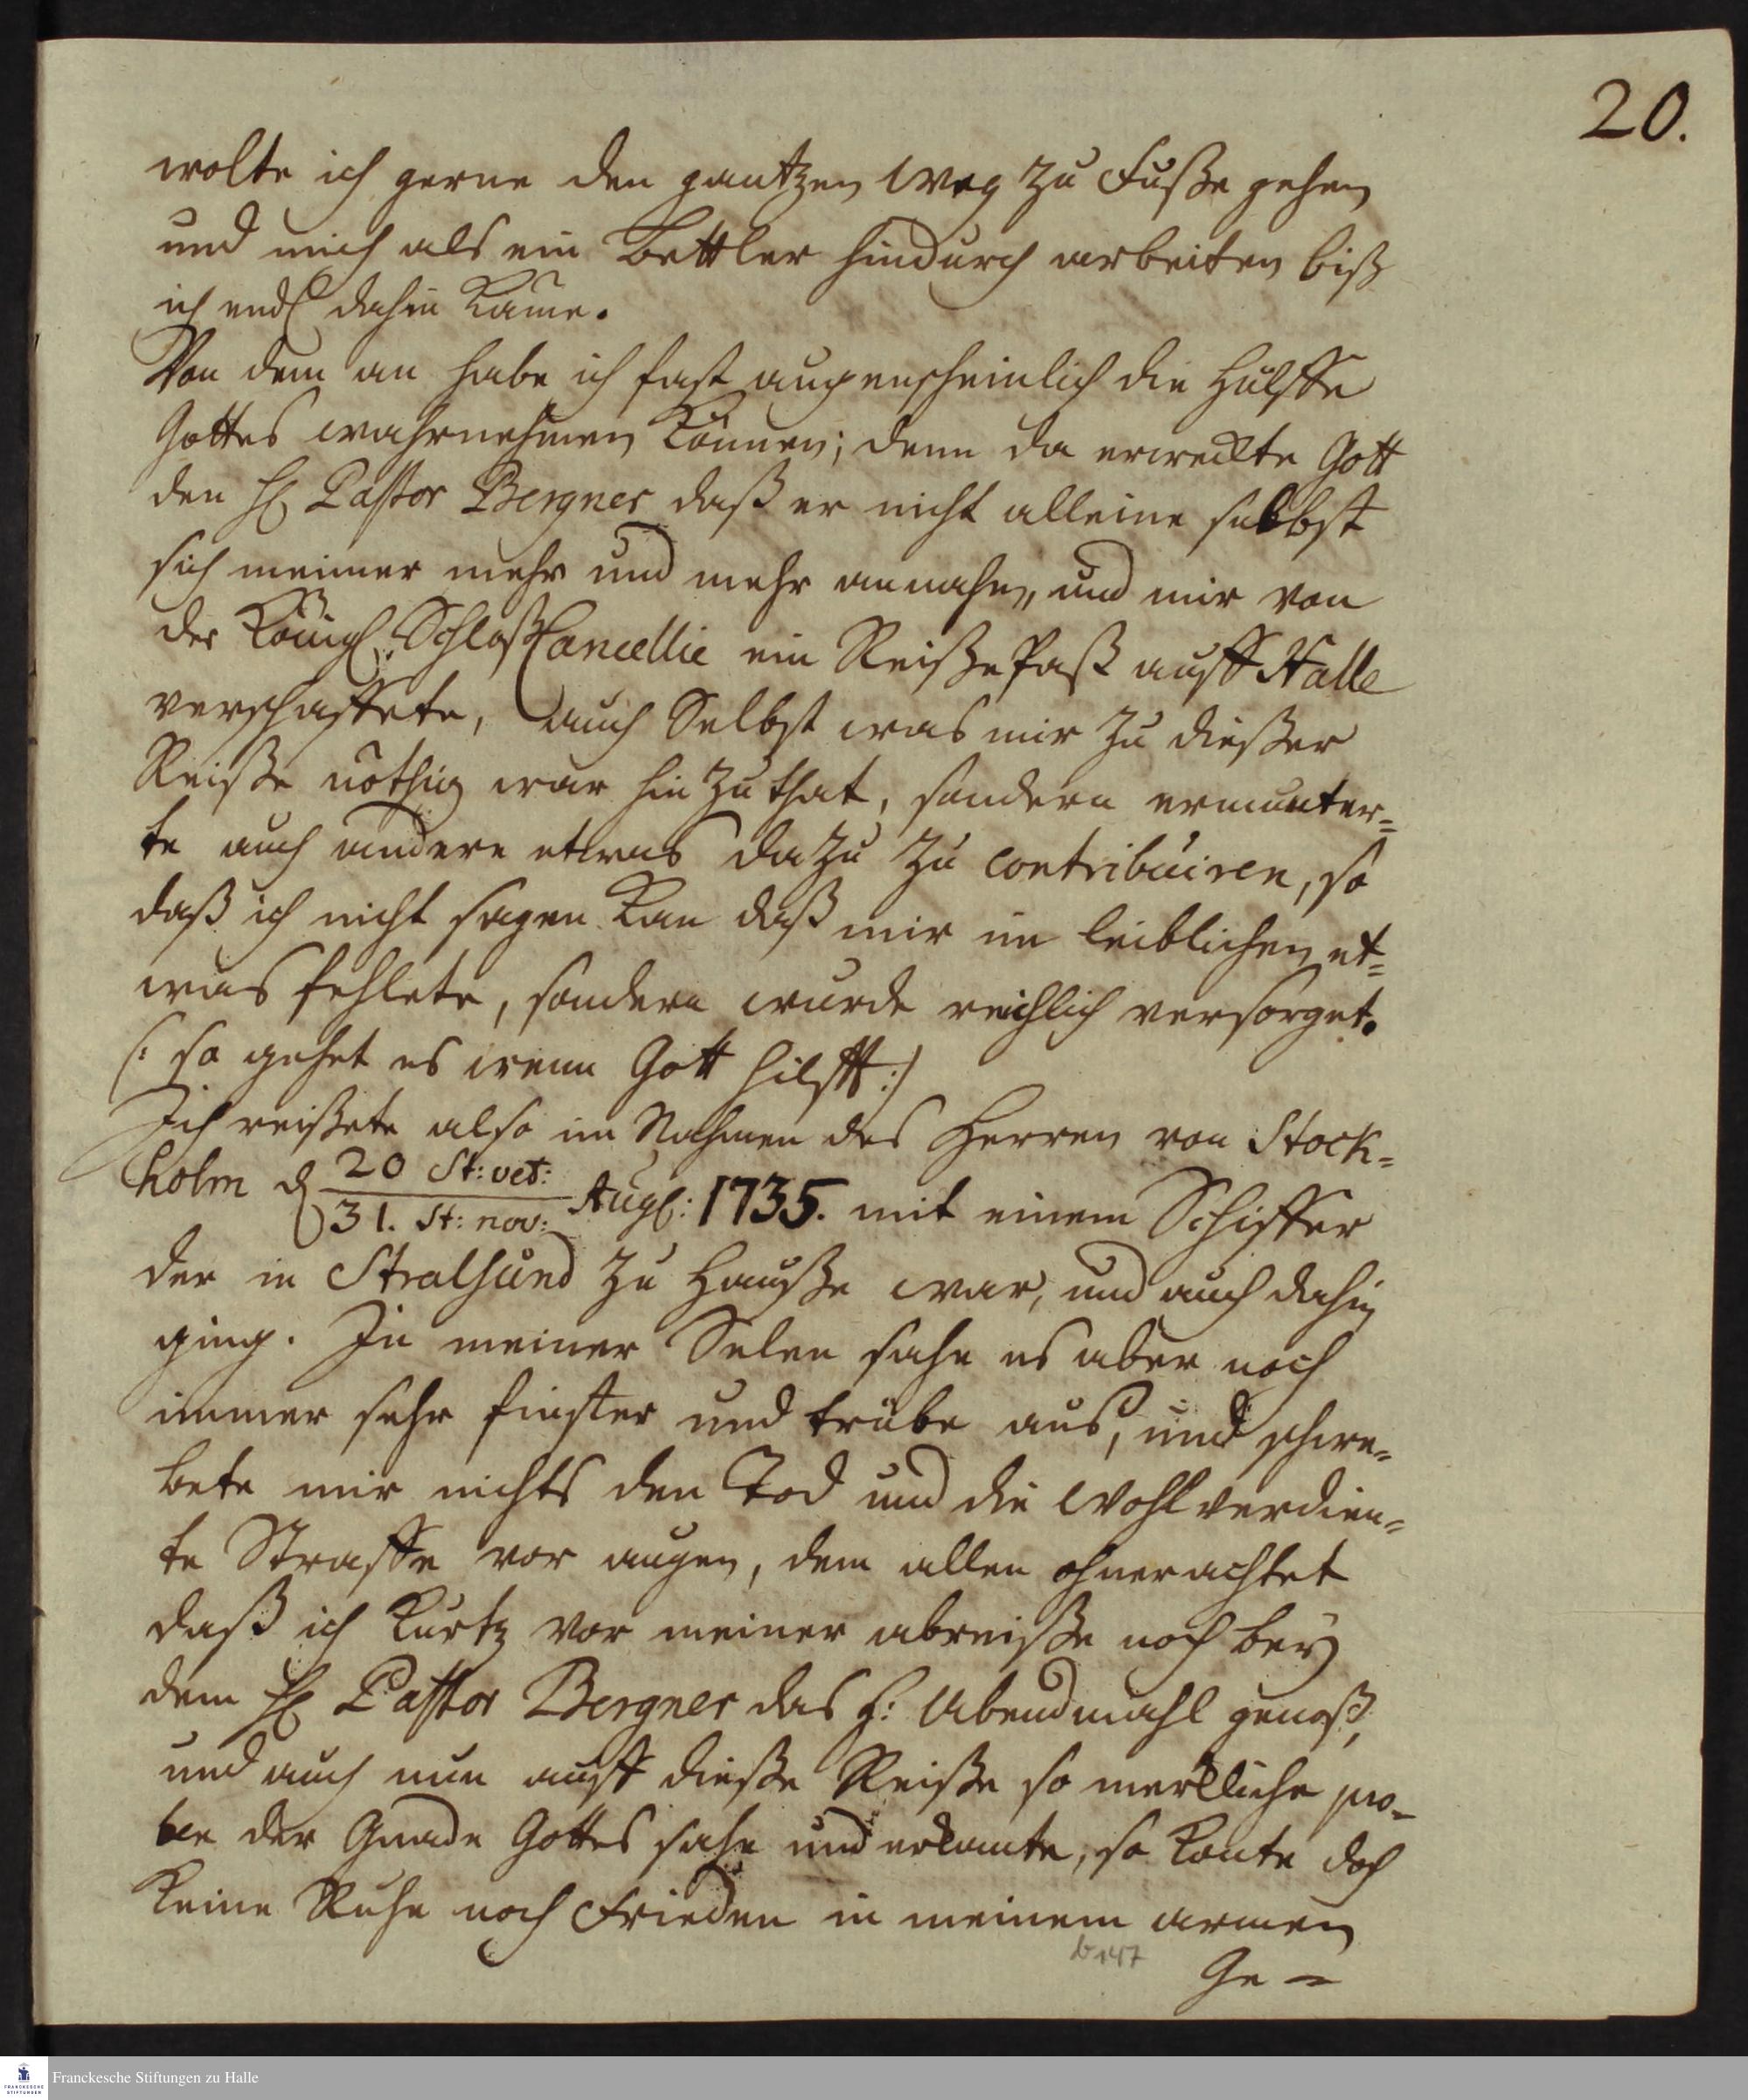 20.
wolte ich gerne den gantzen Weg zu Fuße gehen
und mich als ein Bettler hindurch arbeiten biß
ich endl dahin käme.
Von dem an habe ich fast augenscheinlich die Hülffe
Gottes wahrnehmen können; denn da erweckte Gott
den H Pastor Bergner daß er nicht alleine selbst
sich meiner mehr und mehr annahm, und mir von
der Königl. Schloß Cancellie ein Reiße Paß auff Halle
verschaffete, auch Selbst was mir zu dießer
Reiße nöthig war hin zu that, sondern ermunter=
te auch andere etwas dazu zu contribuiren, so
daß ich nicht sagen kan daß mir im leiblichen et=
was fehlete, sondern wurde reichlich versorget.
(: so gehet es wenn Gott hilfft :)
Ich reißete also im Nahmen des Herren von Stock=
holm d 20 St: vet: / 31. St: nov: Aug: 1735. mit einem Schiffer
der in Stralsund zu Hauße war, und auch dahin
ging. In meiner Selen sahe es aber noch
immer sehr finster und trübe aus, und schwe=
bete mir nichts den Tod und die Wohl verdien=
te Straffe vor augen, dem allen ohnerachtet
daß ich kurtz vor meiner abreiße noch bey
dem H Pastor Bergner das H: Abendmahl genoß,
und auch nun auff dieße Reiße so merkliche pro=
ben der Gnade Gottes sahe und erkante, so konte doch
keine Ruhe noch Frieden in meinem armen
b147
Ge=
Franckesche Stiftungen zu Halle
FRANCKESCHE
STIFTUNGEN